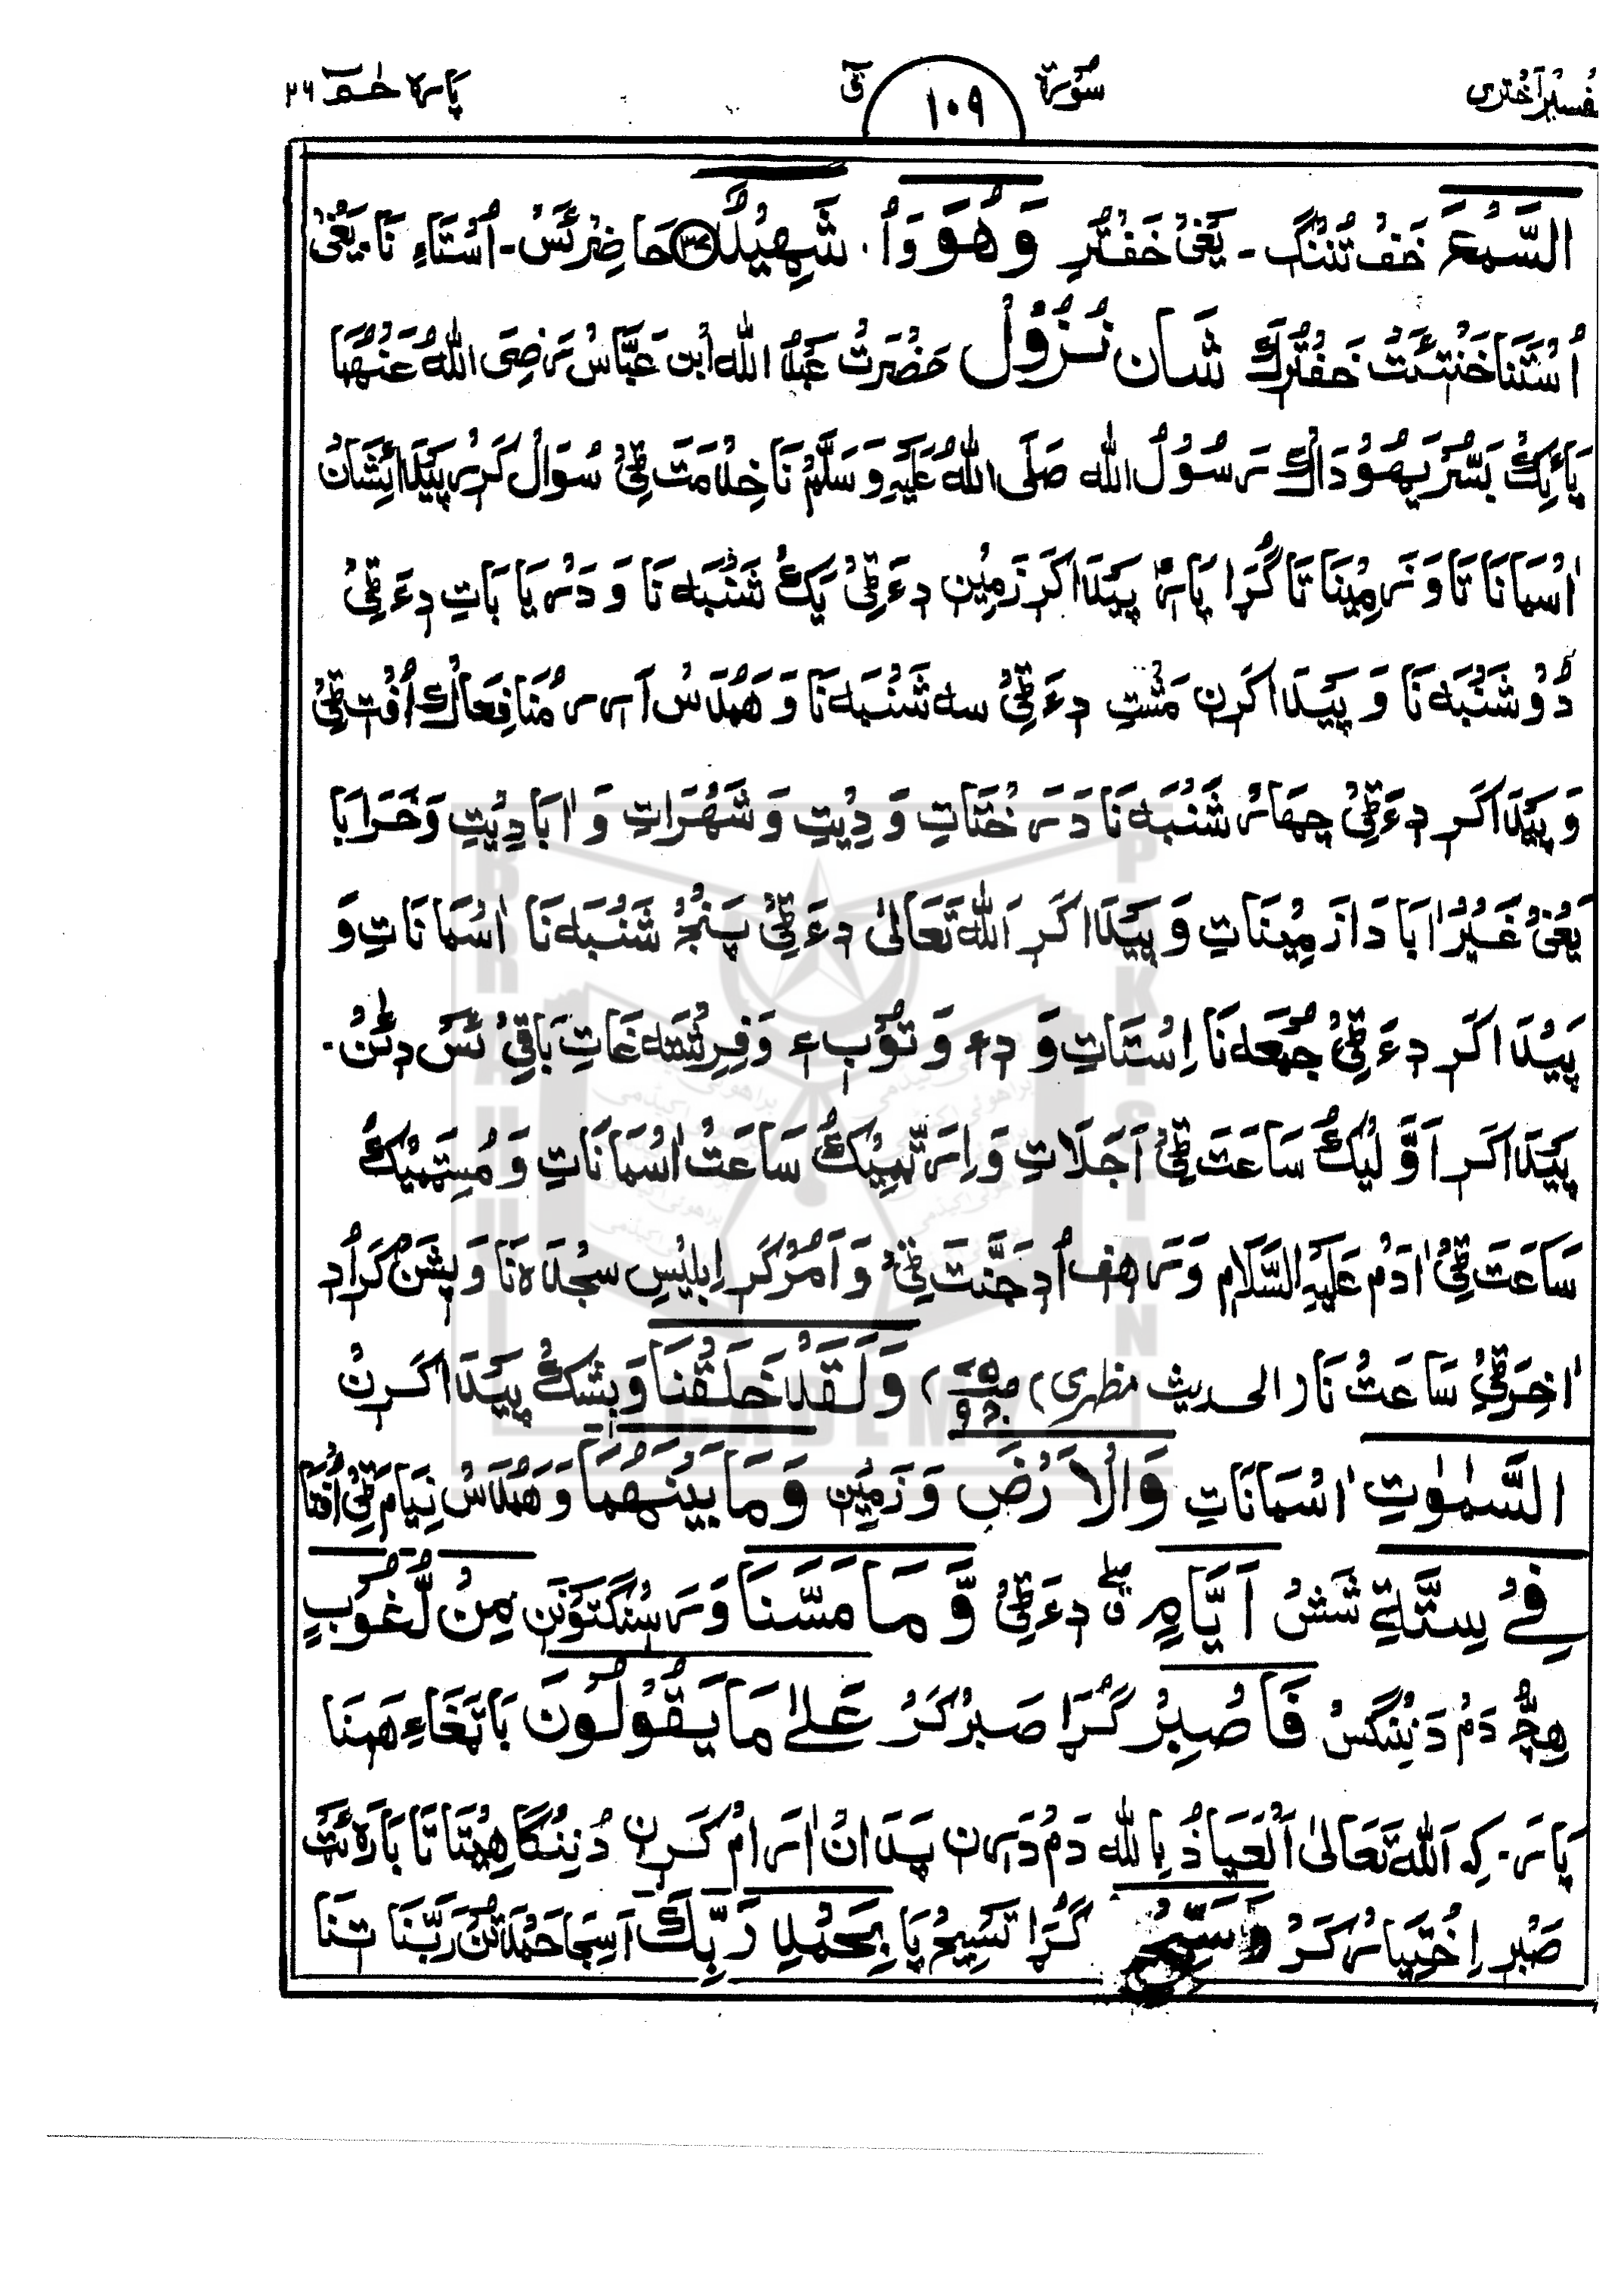 تفسیر اختری سُوْرَۃ ١٠٩ قٓ پارہ حٰـمٓ ٢٦
السَّمْعَ خَفْ تُننگ۔ یَعْنِیْ خَفْتَرِ وَهُوَ وَاُ شَهِيْدٌ ﴿٣٧﴾ حَاضِرْئَسْ۔ اُسْتَاءِ نَا۔ یَعْنِیْ
اُسْتَنَا خَنْتَئَتْ خَفْتَرِكْ شَان نُزُوْل حَضْرَتْ عَبْدُ اللّٰه اِبْن عَبَّاسْ رَضِیَ اللّٰهُ عَنْهُمَا
پَائِكْ بَسُّرْ یَهُوْدَاكْ رَسُوْلُ اللّٰه صَلَّی اللّٰهُ عَلَیْہِ وَسَلَّمْ نَا خِدْمَتْ ٹِیْ سُوَالْ کَرِرْ پَیْدَائِشَانْ
اٰسْمَانَاتَا وَ زَمِیْنَاتَا گُڑَا پَارِ پَیْدَا کَرِ زَمِیْنِ دِءَ ٹِیْ یَكْ شَنْبَہ نَا وَ دَرْیَابَاتِ دِءَ ٹِیْ
دُوْ شَنْبَہ نَا وَ پَیْدَا کَرِن مَشْتِ دِءَ ٹِیْ سہ شَنْبَہ نَا وَ هَمْدَسْ اَرِرْ مُنَافِعَاكْ اُفْتِ ٹِیْ
وَ پَیْدَا کَرِ دِءَ ٹِیْ چِهَارْ شَنْبَہ نَا دَرَخْتَاتِ وَ دِیْتِ وَ شَهْرَاتِ وَ اٰبَادِیْتِ وَ خَرَابَا
یَعْنِیْ غَیْرْ اٰبَادَا زَمِیْنَاتِ وَ پَیْدَا کَرِ اَللّٰه تَعَالیٰ دِءَ ٹِیْ پَنْجْ شَنْبَہ نَا اٰسْمَانَاتِ وَ
پَیْدَا کَرِ دِءَ ٹِیْ جُمْعَہ نَا اِسْتَاتِ وَ دِءِ وَ تُوْبِءِ وَ فِرِشْتَہ غَاتِ بَاقِیْ ئَسْ دِئَنْ۔
پَیْدَا کَرِ اَوَّلِیْكُ سَاعَتَ ٹِیْ اَجَلَاتِ وَ اِرَٹَّمِیْكُ سَاعَتْ اٰسْمَانَاتِ وَ مُسِٹَمِیْكُ
سَاعَتَ ٹِیْ اٰدَمْ عَلَیْہِ السَّلَام وَ رَهِف اُدِ جَنَّتَ ٹِیْ وَ اَمَرْ کَرِ اِبْلِیْسِ سِجْدَہ نَا وَ پِشَنْ کَرِ اُدِ
اٰخِرَ ٹِیْ سَاعَتْ نَا (الحدیث مظهری) وَلَقَدْ خَلَقْنَا وَ بِشَكْ پَیْدَا کَرِنْ
السَّمٰوٰتِ اٰسْمَانَاتِ وَالْاَرْضَ وَ زَمِیْنِ وَمَا بَيْنَهُمَا وَ هَمْدَسْ نِیَامَ ٹِیْ اُفْتَا
فِيْ سِتَّةِ شَشْ اَيَّامٍ دِءَ ٹِیْ وَّمَا مَسَّنَا وَ رَسِنْگَتَوْنَنِ مِنْ لُّغُوْبٍ
هِچُّ دَمْ دَنِنْگَسْ فَاصْبِرْ گُڑَا صَبِرْ کَرْ عَلٰى مَا يَقُوْلُوْنَ بَاتَغَاءِ هَمِنَا
پَارَ۔ کِہ اَللّٰه تَعَالیٰ اَلْعَیَاذُ بِاللّٰه دَمْ دَرِن پَدَانْ اٰرَامْ کَرِن دُنِنْگَا هِیْتَاتَا بَارَہ ئَتْ
صَبْرِ اِخْتِیَارْ کَرْ وَسَبِّحْ گُڑَا تَسْبِیْحْ پَا بِحَمْدِ رَبِّكَ اَسِجَا حَمْدَتَنْ رَبَّنَا تِنَا